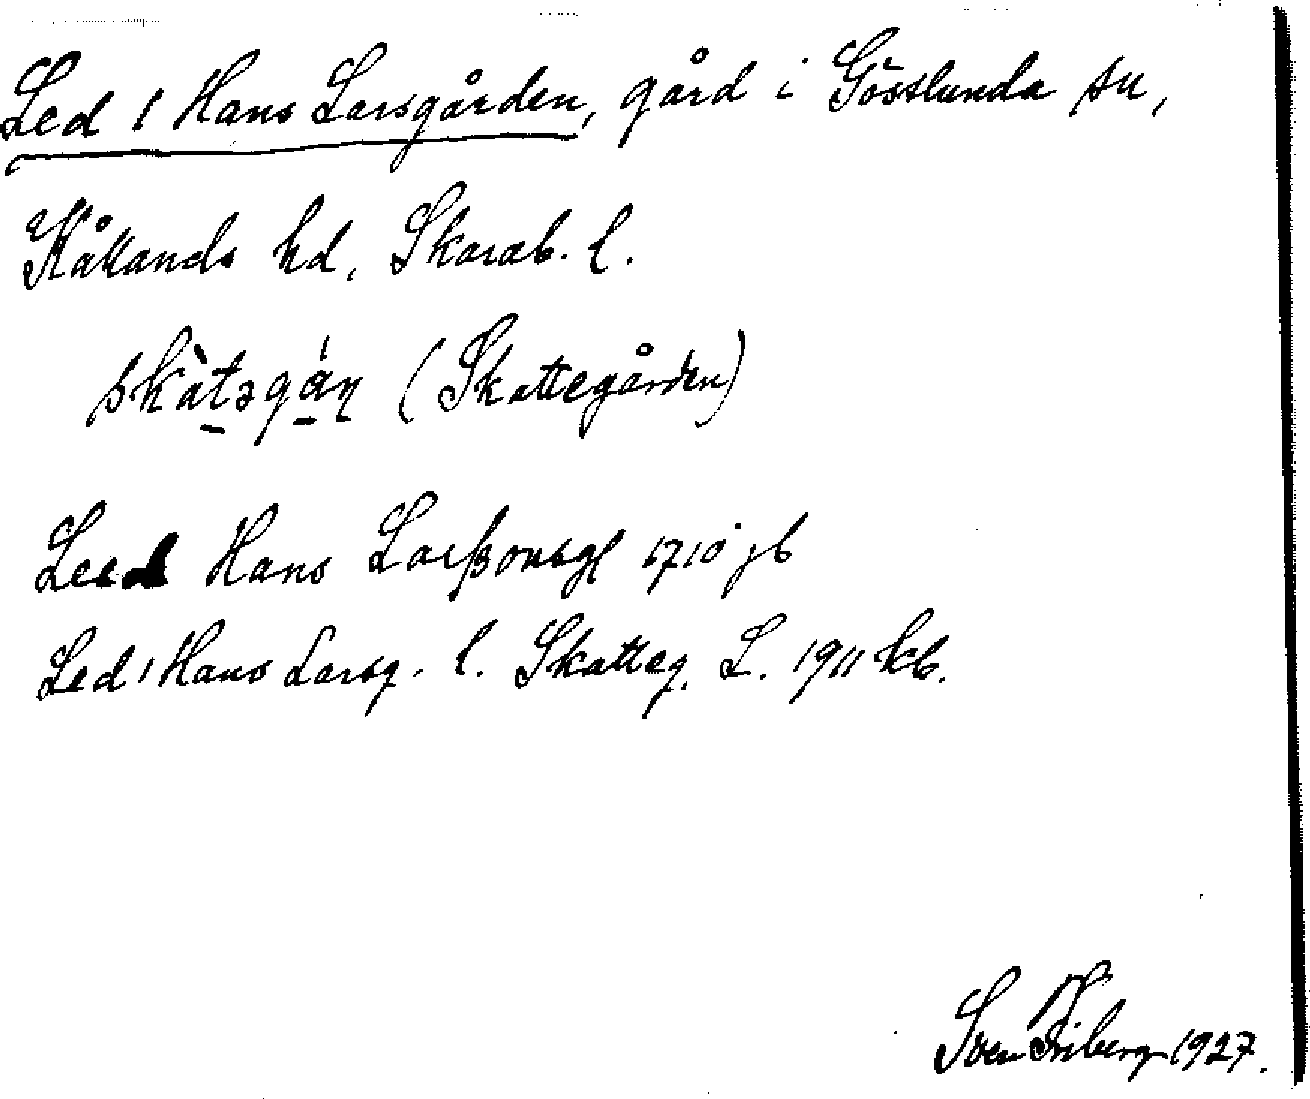 Led 1 Hans Larsgården, gård i Gösslunda sn,
Kållands hd, Skarab. l.
skàtəgá̱ṉ (Skattegården)
Leed Hans Larßonsg 1710 jb
Led 1 Hans Larsg. l. Skatteg. L. 1911 kb.
Sven Friberg 1927.